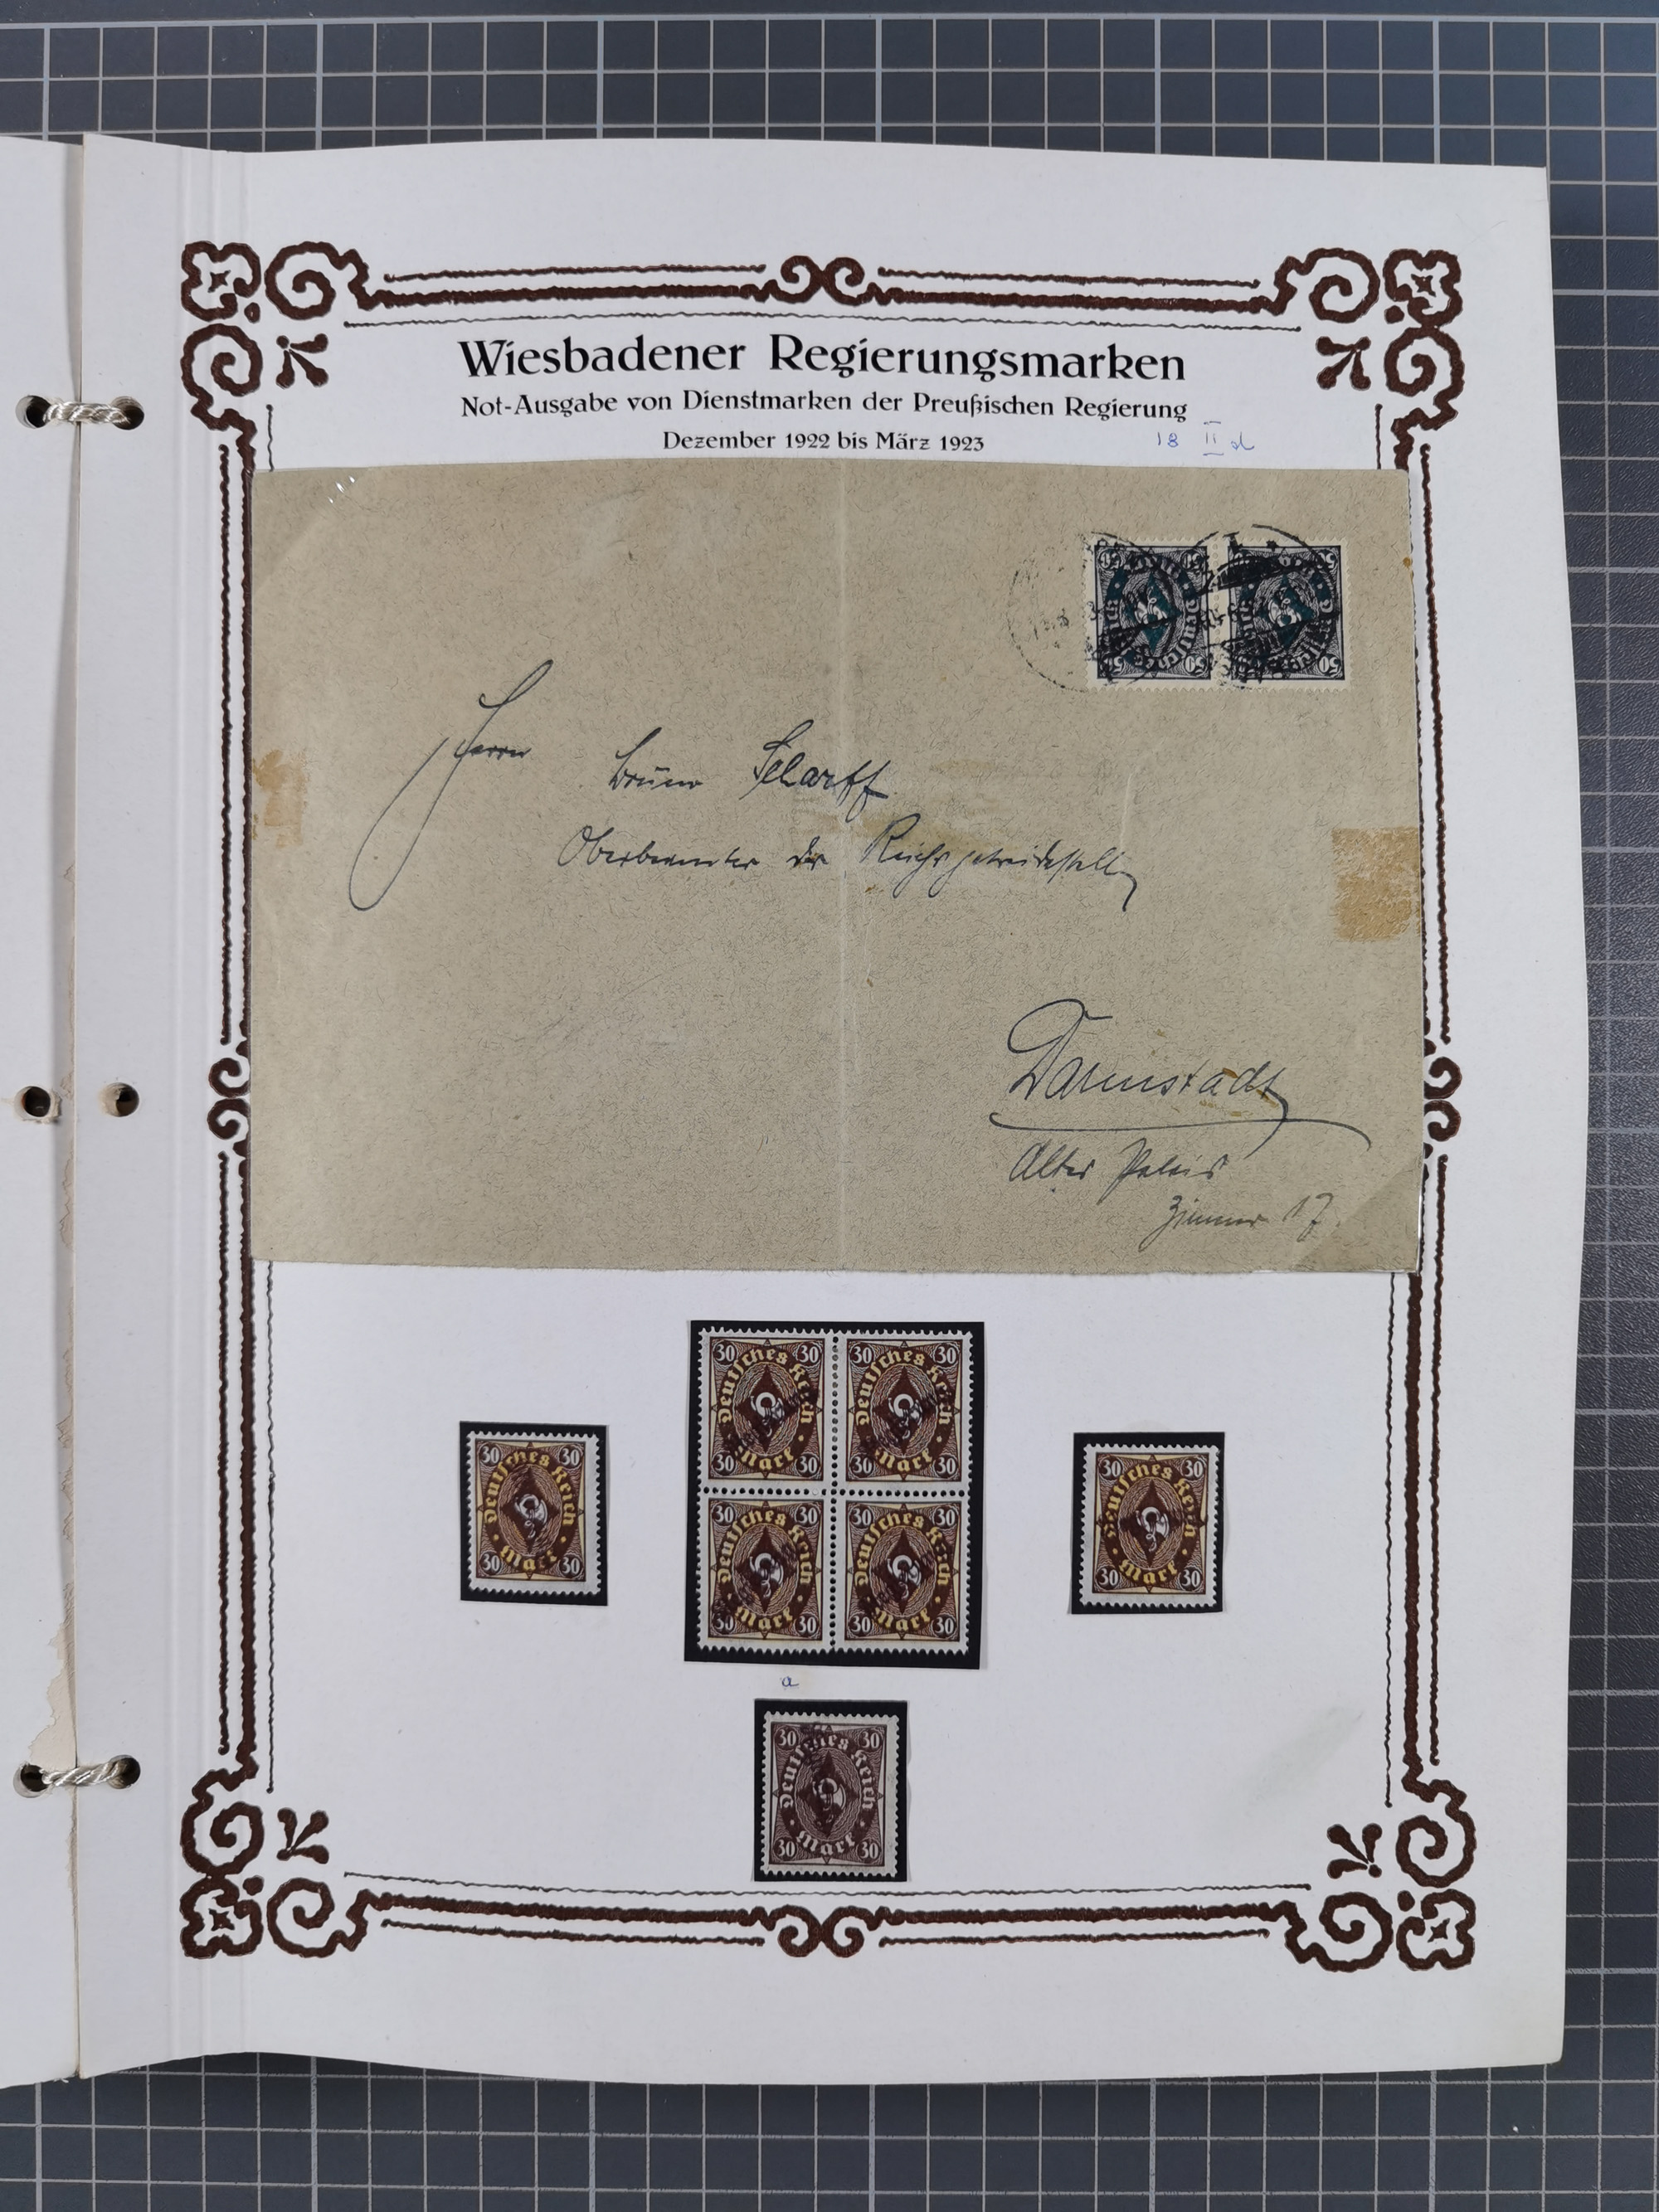 Wiesbadener Regierungsmarken
Not-Ausgabe von Dienstmarken der Preußischen Regierung
Dezember 1922 bis März 1923
18 II d
50 50
50 50
Herrn Bruno Scharff
Oberbeamter der Reichsgetreidestelle
Darmstadt
Altes Palais
Zimmer 17.
30 30 30 30
Deutsches Reich Deutsches Reich
Mark Mark
30 30 30 30
30 30 30 30
Deutsches Reich Deutsches Reich
Mark Mark
30 30 30 30
30 30
Deutsches Reich
Mark
30 30
30 30
Deutsches Reich
Mark
30 30
a
30 30
Deutsches Reich
Mark
30 30